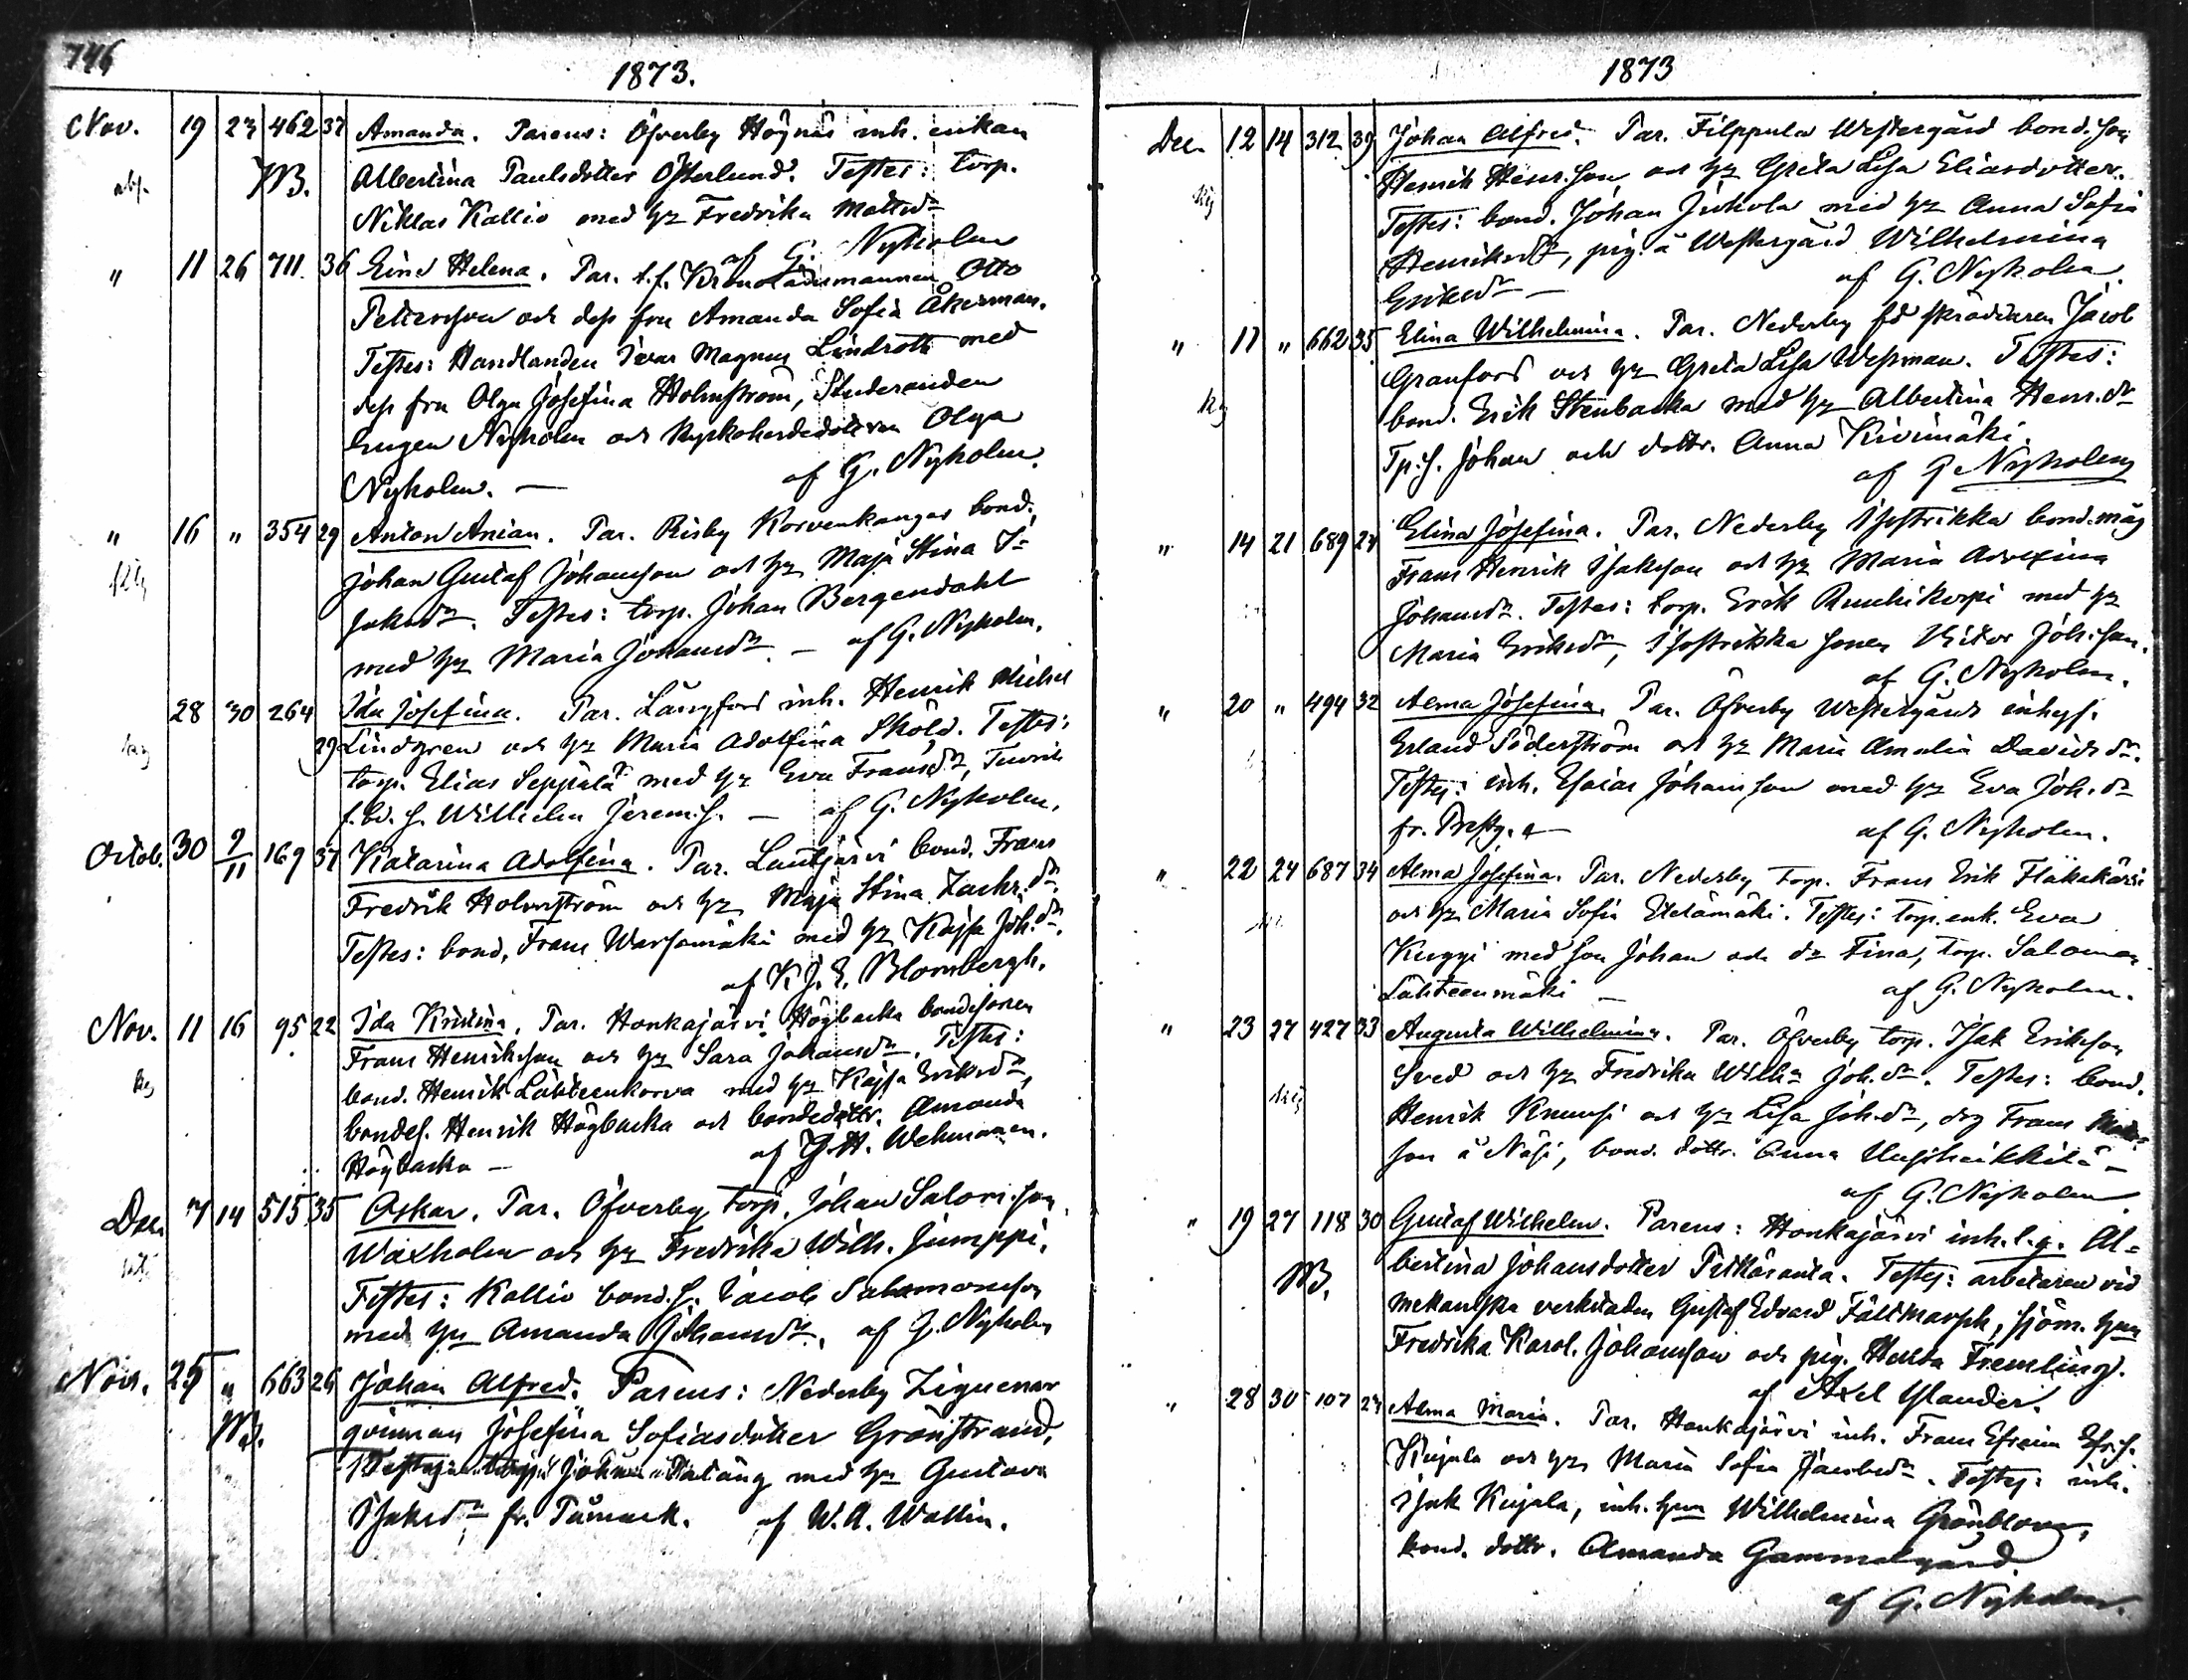 746
1873.
Nov. 19 23 462 37 Amanda. Parens: Öfverby Högnäs inh. enkan
NB. Albertina Paulsdotter Österlund. Testes: torp.
Niklas Kallio med hu Fredrika Mattsdr
af G. Nyholm
" 11 26 711. 36 Eine Helena. Par. t.f. Kronolänsmannen Otto
Petterson och dess fru Amanda Sofia Åkerman.
Testes: Handlanden Ivar Magnus Lindroth med
dess fru Olga Josefina Holmström, Studeranden
Eugen Nyholm och kyrkoherdedottern Olga
Nyholm. — af G. Nyholm.
" 16 " 354 29 Anton Anian. Par. Risby Korvenkangas bond.
Johan Gustaf Johansson och hu Maja Stina
Jakobdr. Testes: torp. Johan Bergendahl
med hu Maria Johansdr. — af G. Nyholm.
28 30 264 Ida Josefina. Par. Långfors inh. Henrik Michel
29 Lindgren och hu Maria Adolfina Sköld. Testes:
torp. Elias Seppälä med hu Eva Fransdr,
f. bd. s. Wilhelm Jerem.s. — af G. Nyholm.
Octob. 30 2/11 169 37 Katarina Adolfina. Par. Lautjärvi bond. Frans
Fredrik Holmström och hu Maja Stina Zachr.dr.
Testes: bond. Frans Warsomäki med hu Kajsa Joh.dr.
af K. J. E. Blombergh.
Nov. 11 16 95 22 Ida Kristina. Par. Honkajärvi Högbacka bondesonen
Frans Henriksson och hu Sara Johansdr. Testes:
bond. Henrik Lähteenkorva med hu Kajsa Eriksdr,
bondes. Henrik Högbacka och bondedottr. Amanda
Högbacka — af G. H. Wehmanen.
Dec. 7 14 515 35 Oskar. Par. Öfverby torp. Johan Salom.son
Waxholm och hu Fredrika Wilh. Jumppi.
Testes: Kallio bond.s. Jacob Salomonson
med hu Amanda Johansdr. af G. Nyholm
Nov. 25 " 663 26 Johan Alfred. Parens: Nederby Ziguenar
NB. qvinnan Josefina Sofiasdotter Grönstrand.
Testes: torp. Johan med hu Gustava
Isaksdr fr. Påmark. af W. A. Wallin.
1873
Dec. 12 14 312 39 Johan Alfred. Par. Filppula Westergård bond. son
Henrik Henr.son och hu Greta Lisa Eliasdotter.
Testes: bond. Johan Jukola med hu Anna Sofia
Henriksdr, pig. å Westergård Wilhelmina
Eriksdr — af G. Nyholm.
" 11 " 662 35 Elina Wilhelmina. Par. Nederby fd skräddaren Jacob
Granfors och hu Greta Lisa Wessman. Testes:
bond. Erik Stenbacka med hu Albertina Henr.dr
Tp.s. Johan och dottr. Anna Kivimäki.
af G Nyholm
" 14 21 689 24 Elina Josefina. Par. Nederby Isostrikka bond.måg
Frans Henrik Isaksson och hu Maria
Johansdr. Testes: torp. Erik Ruuhikorpi med hu
Maria Eriksdr, Isostrikka sonen Victor Joh.son.
af G. Nyholm.
" 20 " 494 32 Alma Josefina. Par. Öfverby Westergårds inhys.
Erland Söderström och hu Maria Amalia Davidsdr.
Testes: inh. Esaias Johansson med hu Eva Joh.dr
fr. Prestg. — af G. Nyholm.
" 22 24 687 34 Alma Josefina. Par. Nederby torp. Frans Erik
och hu Maria Sofia Etelämäki. Testes: torp.enk. Eva
Kuggi med son Johan och dr Fina, torp. Salomon
Lähteenmäki — af G. Nyholm.
" 23 27 427 33 Augusta Wilhelmina. Par. Öfverby torp. Isak Erikson
Sved och hu Fredrika Wilh.a Joh.dr. Testes: bond.
Henrik Knuusi och hu Lisa Joh.dr, drg Frans Matts=
son å Näsi, bond. dottr. Anna —
af G. Nyholm
" 19 27 118 30 Gustaf Wilhelm. Parens: Honkajärvi inh. l.q. Al=
NB. bertina Johansdotter Pitkäranta. Testes: arbetaren vid
mekaniska verkstaden Gustaf Edvard Fältmarsch, sjöm. hu
Fredrika Karol. Johansson och pig. Hulda Fremling.
af Axel Ylander.
" 28 30 107 24 Alma Maria. Par. Honkajärvi inh. Frans Efraim Efr.s.
Kujala och hu Maria Sofia Jacobsdr. Testes: inh.
Isak Kujala, inh. hu Wilhelmina Grönblom,
bond. dottr. Amanda Gammelgård
af G. Nyholm.